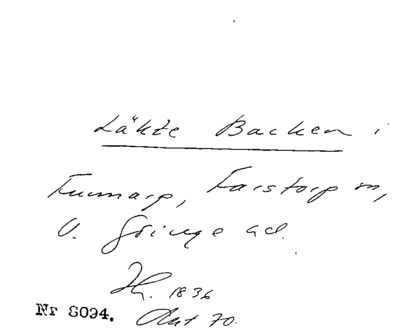 Läkte Backen i
Emmarp, Farstorp m,
V. Göinge hd.
Hl. 1836
Nr 8094. Akt 70.